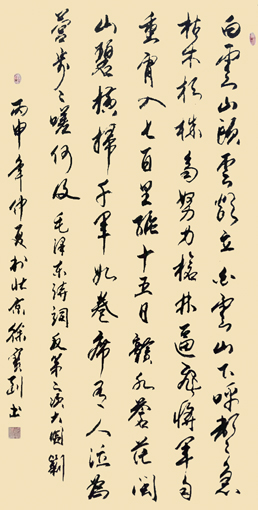 白雲山頭雲欲立白雲山下呼声急
枯木朽株齐努力槍林逼飛將軍自
重霄入七百里驱十五日赣水苍茫闽
山碧横掃千軍如卷席有人泣為
营步々嗟何及毛泽東诗詞反第二次大围剿
丙申年仲夏於北京徐寳書